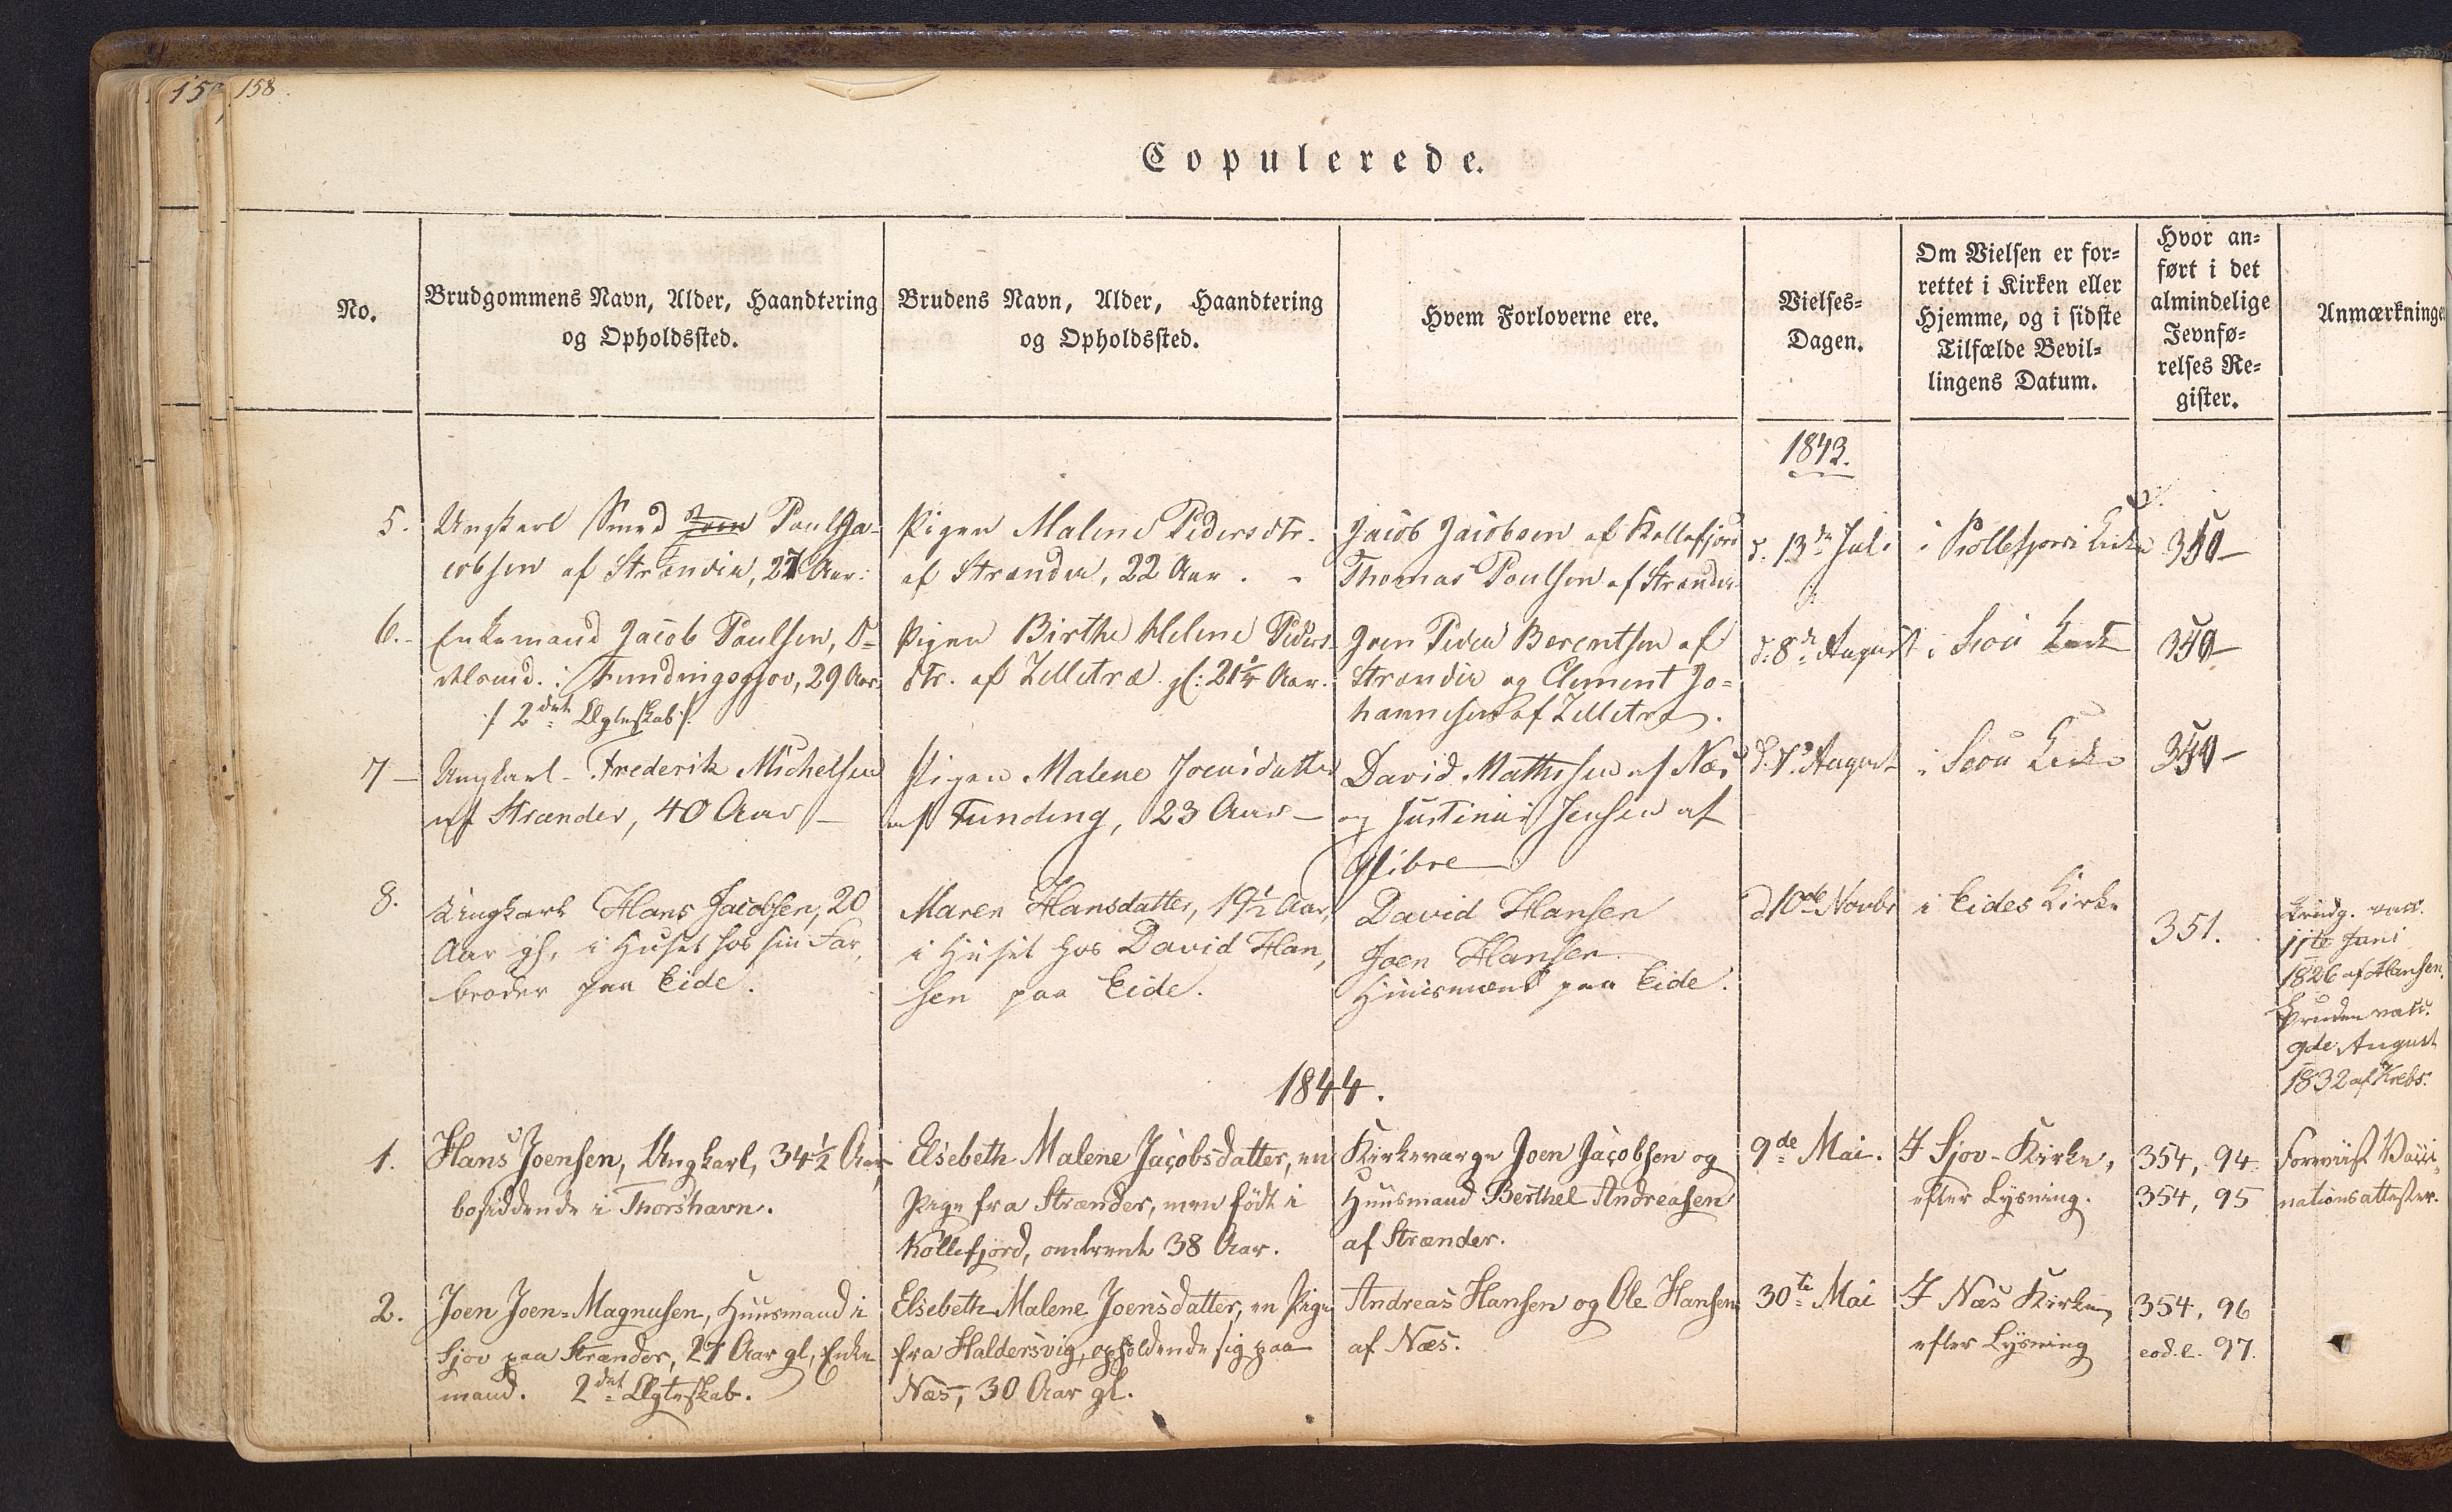 158.
Copulerede.
No.
Brudgommens Navn, Alder, Haandtering
og Opholdssted.
Brudens Navn, Alder, Haandtering
og Opholdssted.
Hvem Forloverne ere.
Vielses-
Dagen.
Om Vielsen er for-
rettet i Kirken eller
Hjemme, og i sidste
Tilfælde Bevil-
lingens Datum.
Hvor an-
ført i det
almindelige
Jevnfø-
relses Re-
gister.
Anmærkninge
1843.
5.
Ungkarl Smed Joen Poul Ja-
cobsen af Strænder, 27 Aar.
Pigen Malene Pedersdtr.
af Strænder, 22 Aar. -
Jacob Jacobsen af Kollefjord
Thomas Poulsen af Strænder
d. 13de Juli
i Kollefjord Kirke
350-
6.-
Enkemand Jacob Poulsen, O-
i Fundingsgjov, 29 Aar.
/: 2det Ægteskab :/
Pigen Birthe Helene Peders-
dtr. af Zelletræ gl: 21 Aar.
Joen Peder Berentsen af
Strænder og Clement Jo=
hannesen af Zelletræ.
d. 8de August
i Kirke
350-
7-
Ungkarl Frederik Michelsen
af Strænder, 40 Aar -
Pigen Malene Joensdatter
af Funding, 23 Aar -
David Mathissen af Næs
og Justinus Jensen af
Glibre
August
i Kirke
350-
8.
Ungkarl Hans Jacobsen, 20
Aar gl, i Huset hos sin Far,
broder paa Eide.
Maren Hansdatter, 19½ Aar,
i Huset hos David Han,
sen paa Eide.
David Hansen
Joen Hansen
Huusmænd paa Eide.
d 10de Novbr
i Eides Kirke
351.
Brudg. vacc.
11te Juni
1826 af Hansen.
Bruden vacc.
9de August
1832 af Krebs.
1844.
1.
Hans Joensen, Ungkarl, 34½ Aar,
bosiddende i Thorshavn.
Elsebeth Malene Jacobsdatter, en
Pige fra Strænder, men født i
Kollefjord, omtrent 38 Aar.
Kirkeværge Joen Jacobsen og
Huusmand Berthel Andreasen
af Strænder.
9de Mai.
I Sjov-Kirke,
efter Lysning.
354, 94.
354, 95
Foreviist Vacci,
nationsattester.
2.
Joen Joen-Magnusen, Huusmand i
Sjov paa Strænder, 27 Aar gl, Enke
mand. 2det Ægteskab.
Elsebeth Malene Joensdatter, en Pige
fra Haldersvig, opholdende sig paa
Næs, 30 Aar gl.
Andreas Hansen og Ole Hansen
af Næs.
30te Mai
I Næs Kirke,
efter Lysning
354, 96
eod. l. 97.